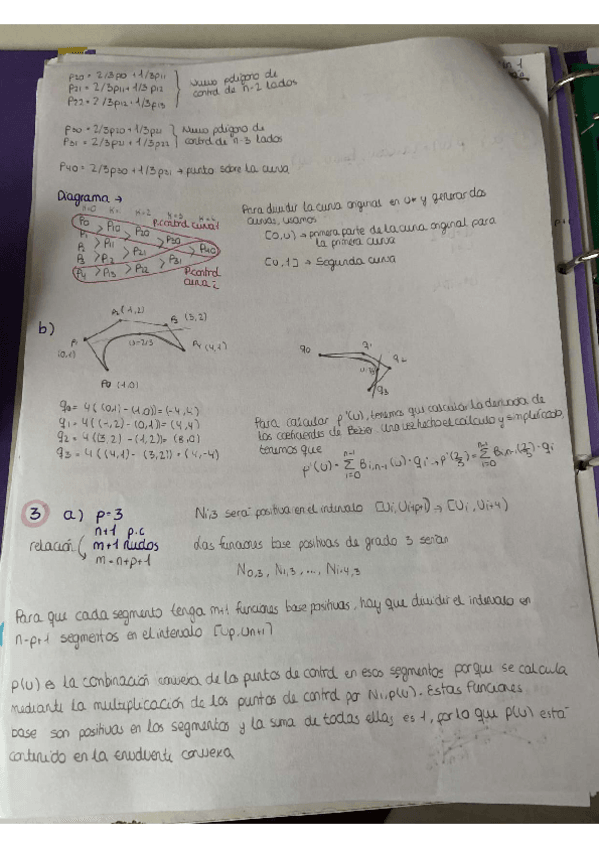 P20 = 2/3p10 + 1/3p11
P21 = 2/3p11 + 1/3 p12
P22 = 2/3p12 + 1/3p13
Nuevo polígono de
control de n-2 lados
P30 = 2/3p20 + 1/3p21
P31 = 2/3p21 + 1/3p22
Nuevo polígono de
control de n-3 lados
P40 = 2/3p30 + 1/3p31 → punto sobre la curva
Diagrama →
P.control curva 1
P0 > P10 > P20 > P30 > P40
P1 > P11 > P21 > P31
P4 > P13 > P22
P.control
curva 2
Para dividir la curva original en u* y generar dos
curvas, usamos
[0,u) → primera parte de la curva original para
la primera curva
[u,1] → segunda curva
b)
P2 (1,2)
P3 (3,2)
P1
(0,1)
u=2/3
P4 (4,1)
P0 (1,0)
q0
q1
q2
q3
q0 = 4((0,1) - (1,0)) = (-4,4)
q1 = 4((1,2) - (0,1)) = (4,4)
q2 = 4((3,2) - (1,2)) = (8,0)
q3 = 4((4,1) - (3,2)) = (4,-4)
Para calcular p'(u), tenemos que calcular la derivada de
los coeficientes de Bezier. Una vez hecho el cálculo y simplificado,
tenemos que
p'(u) = Σ Bi,n-1(u) · qi → p'(2/3) = Σ Bi,n-1(2/3) · qi
3 a) p=3
relación
n+1 p.c
m+1 nudos
m = n+p+1
Ni,3 será positiva en el intervalo [Ui, Ui+p+1) → [Ui, Ui+4)
Las funciones base positivas de grado 3 serían
N0,3, N1,3, ..., Ni-4,3
Para que cada segmento tenga m+1 funciones base positivas, hay que dividir el intervalo en
n-p+1 segmentos en el intervalo [Up, Un+1]
p(u) es la combinación convexa de los puntos de control en esos segmentos porque se calcula
mediante la multiplicación de los puntos de control por Ni,p(u). Estas funciones
base son positivas en los segmentos y la suma de todas ellas es 1, por lo que p(u) está
contenido en la envolvente convexa